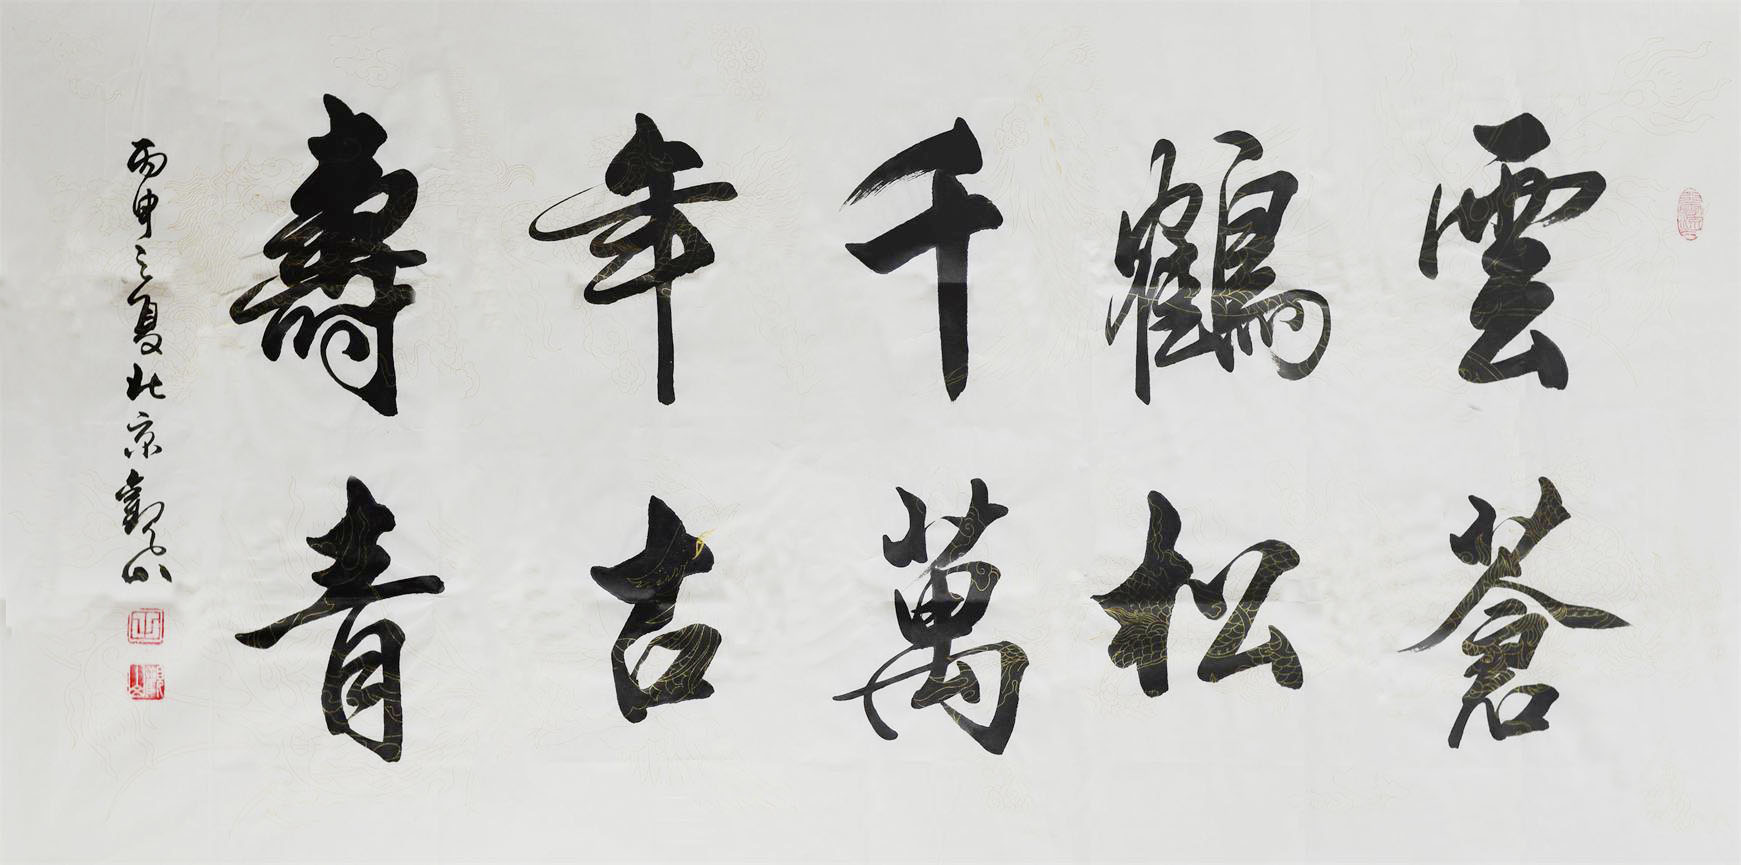 雲鶴千年壽
蒼松萬古青
丙申之夏北京